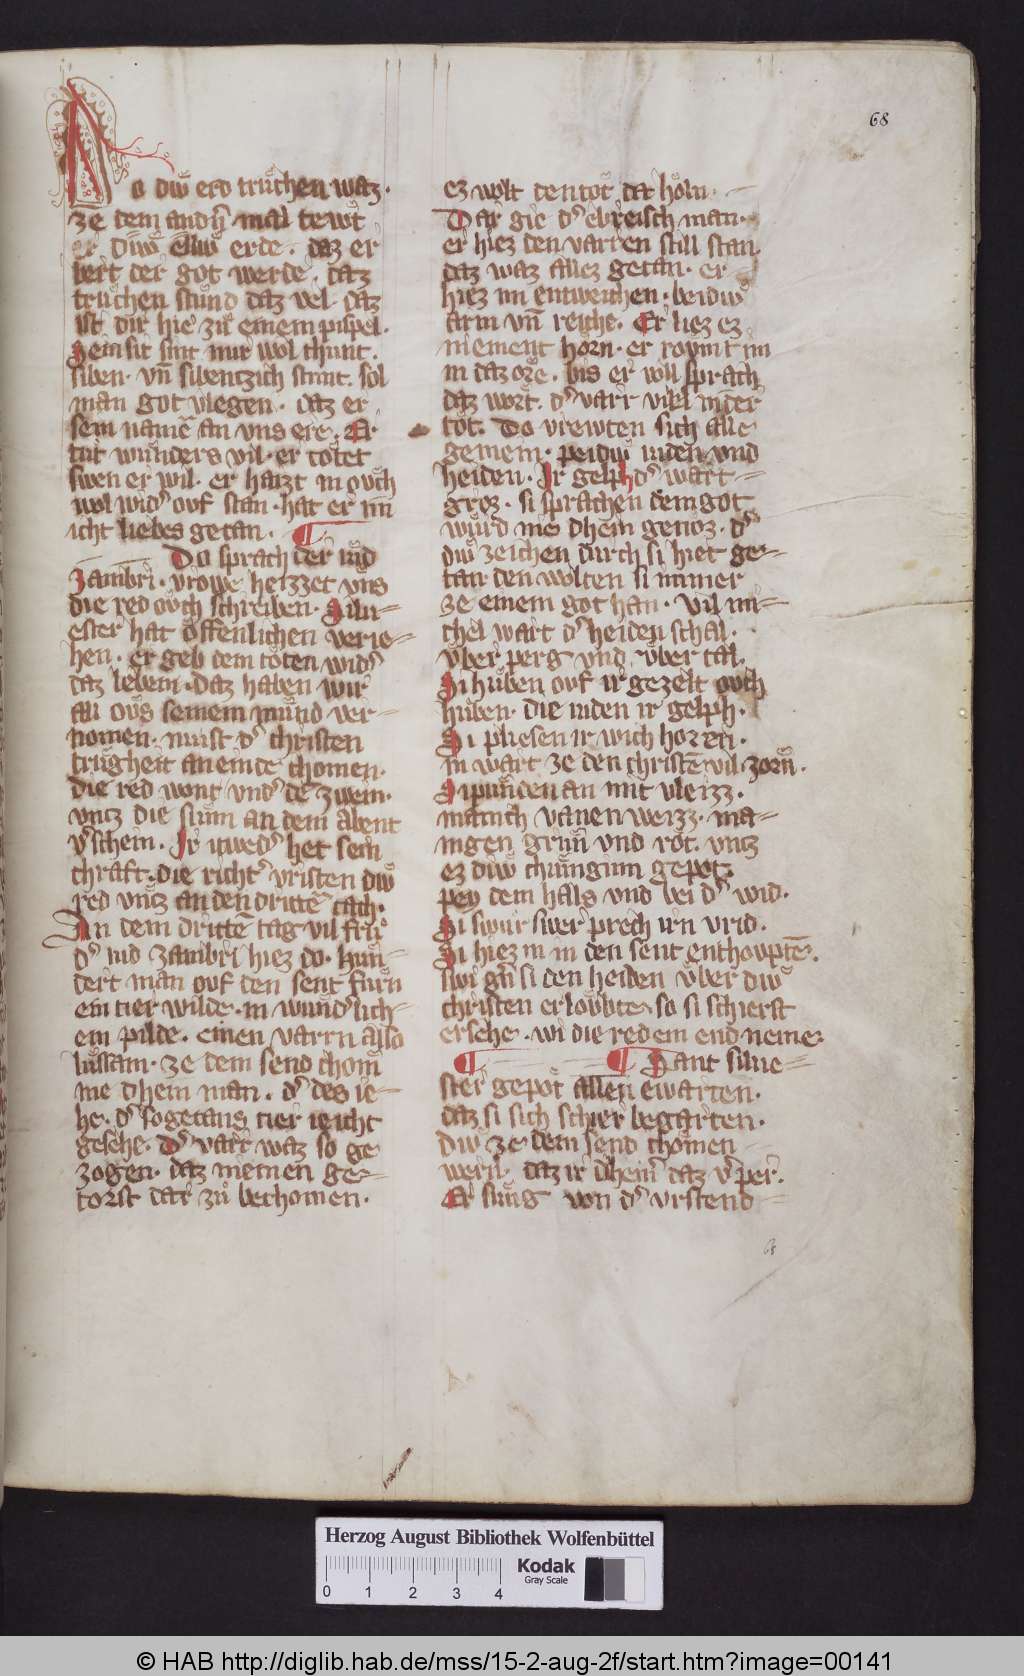 68
A o diẘ erd trůchen waz·
ze dem andn̄ mal tewt
er diẘ elliw erde. daz er
bert der got werde. daz
trůchen stůnd daz vel daz
ist dir hie zů einem pispel.
sein sit sint mir wol chunt.
siben· vn̄ sibentzich stunt. sol
man got vlegen. daz er
sein namē an vns ere. Er
tůt wunders vil· er tötet
swen er wil· er haizt in ovch
wol wid' ovf stan· hat er im
icht liebes getan. ¶
Do sprach der iůd
Zambri· vrowe heizzet vns
die red ovch schreiben· Silu-
ester hat offenlichen verie-
hen. er geb dem toten wid'
daz leben· daz haben wir
all ovs seinem mund ver-
nomen· nu ist d' christen
trugheit an ein ende chomen·
die red wont vnd' dē zwein·
vntz die sunn an dem abent
v'schein. Ir itwed' het sein
chraft· die richt' vristen diẘ
red vntz an den drittē tach·
An dem drittē tag vil frů
d' iud zambri hiez do· hun-
dert man ovf den sent fůrn
ein tier wilde· in wund'lich-
em pilde. einen varrn also
lussam· ze dem send chom
nie dhein man. d' des ie-
he· d' sogetans tier icht
gesehe. D' varr waz so ge
zogen· daz niemen ge-
torst dar zů bechomen.
ez wolt den tot dar holn·
Dar gie d' ebreisch man·
er hiez den varren still stan.
daz waz allez getan· er
hiez im entweichen· beidiẘ
arm vn̄ reiche. Er liez ez
niement horn· er rovnt im
in daz ore. bis er voll sprach
daz wort. d' varr viel nider
tot. Do vrewten sich alle
gemein· peidiw iuden vnd
heiden. Ir gelph d' wart
groz. si sprachen dem got
wurd nie dhein genoz· d'
diw zeichen durch si hiet ge-
tan· den wolten si immer
ze einem got han. Vil mi-
chel wart d' heiden schal·
vber perg vnd vber tal.
Si hůben ovf ir gezelt ovch
hůben· die iuden ir gelph.
Si pliesen ir wich horen.
in wart ze den christē vil zorn.
Si punden an mit vleizz.
manich vanen weizz· ma-
nigen grun vnd rot. vntz
ez diw chuniginn gepot.
pey dem hals vnd bei d' wid.
Si swůr swer prech irn vrid.
Si hiez in in den sent enthovptē.
swi gn̄ si den heiden vber diw
christen erlovbte so si schierst
ersehe. wi die red ein end neme.
¶ ¶ Sant silue-
ster gepot allen ewarten.
daz si sich schier begarten.
diw ze dem send chomen
wern· daz ir dhein' daz v'per.
Er sůng von d' vrstend
68
Herzog August Bibliothek Wolfenbüttel
0 1 2 3 4
Kodak
Gray Scale
© HAB http://diglib.hab.de/mss/15-2-aug-2f/start.htm?image=00141